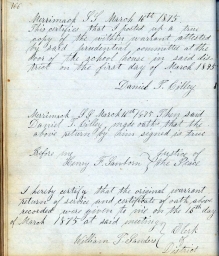 166
Merrimack S.S. March 16th 1875.
This certifies that I posted up a true
copy of the within warrant attested
by said prudential committee at the
door of the school house in said dis
trict on the first day of March 1875
Daniel T. Cilley
Merrimack S.S. March 16th 1875 Then said
Daniel T. Cilley made oath that the
above return by him signed is true
Before me Justice of
Henry F. Sanborn the Peace
I hereby certify that the original warrant
return of service and certificate of oath above
recorded were given to me on the 16th day
of March 1875 at said meeting
William T. Sanborn Clerk
District